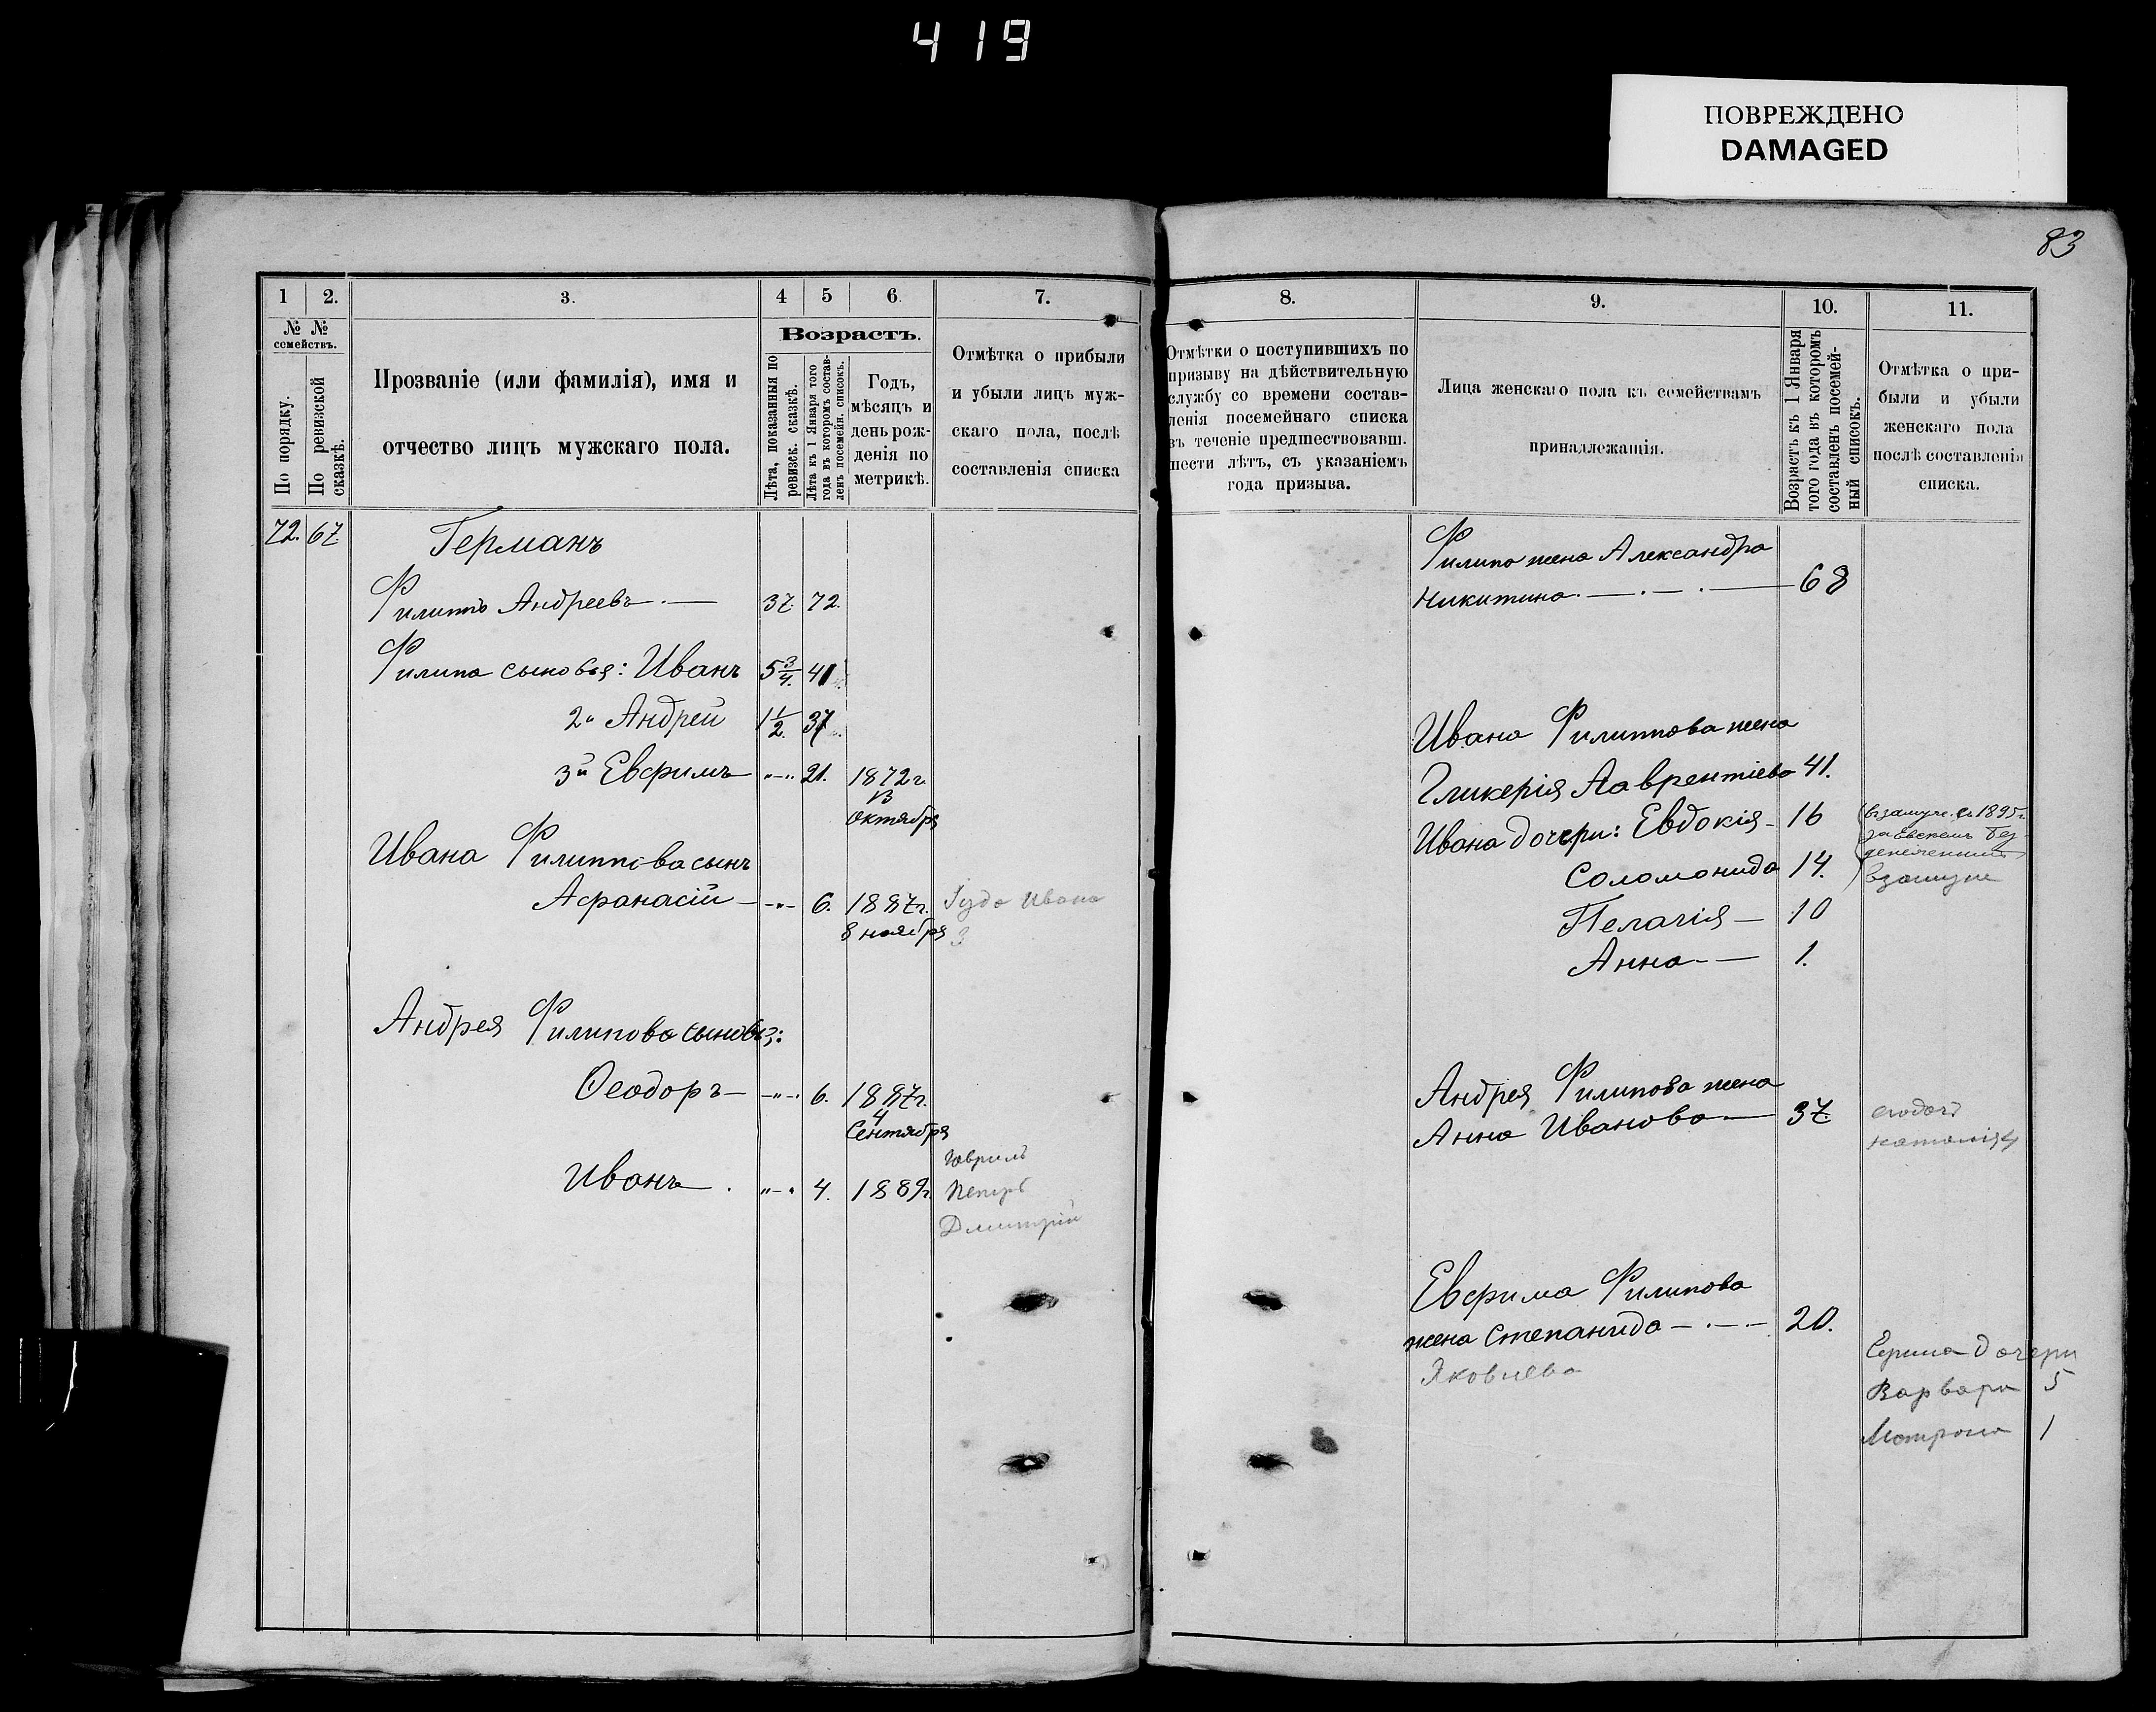 419
ПОВРЕЖДЕНО
DAMAGED
83
1
2.
3.
4
5
6.
7.
№ №
семействъ.
По порядку.
По ревизской
сказкѣ.
Прозваніе (или фамилія), имя и
отчество лицъ мужскаго пола.
Возрастъ.
Лѣта, показанныя по
ревизск. сказкѣ.
Лѣта къ 1 Января того
года въ которомъ состав-
ленъ посемейн. списокъ.
Годъ,
мѣсяцъ и
день рож-
денія по
метрикѣ.
Отмѣтка о прибыли
и убыли лицъ муж-
скаго пола, послѣ
составленія списка
72. 67
Германъ
Филиппъ Андреевъ 37. 72.
Филипа сыновья: Иванъ 5 3/4. 41
2й Андрей 1 1/2. 37.
3й Евфимъ 21. 1872 г.
13
октября
Ивана Филиппова сынъ
Афанасій 6. 1887 г. Иуда Ивана
8 ноября 3
Андрея Филипова сыновья:
Феодоръ 6. 1887 г.
4
Сентября
Гаврилъ
Иванъ 4. 1889 г. Петръ
Дмитрій
8.
9.
10.
11.
Отмѣтки о поступившихъ по
призыву на дѣйствительную
службу со времени состав-
ленія посемейнаго списка
въ теченіе предшествовавш.
шести лѣтъ, съ указаніемъ
года призыва.
Лица женскаго пола къ семействамъ
принадлежащія.
Возрастъ къ 1 Января
того года въ которомъ
составленъ посемей-
ный списокъ.
Отмѣтка о при-
были и убыли
женскаго пола
послѣ составленія
списка.
Филипа жена Александра
Никитина 68
Ивана Филиппова жена
Гликерія Лаврентіева 41.
Ивана дочери: Евдокія 16 въ замуж. съ 1895 г.
за
Соломонида 14. взамуже
Пелагія 10
Анна 1.
Андрея Филипова жена
Анна Иванова 37.
Наталія 4
Евфима Филипова
жена Степанида 20.
Яковлева
Ефима дочери
Варвара 5
Матрона 1